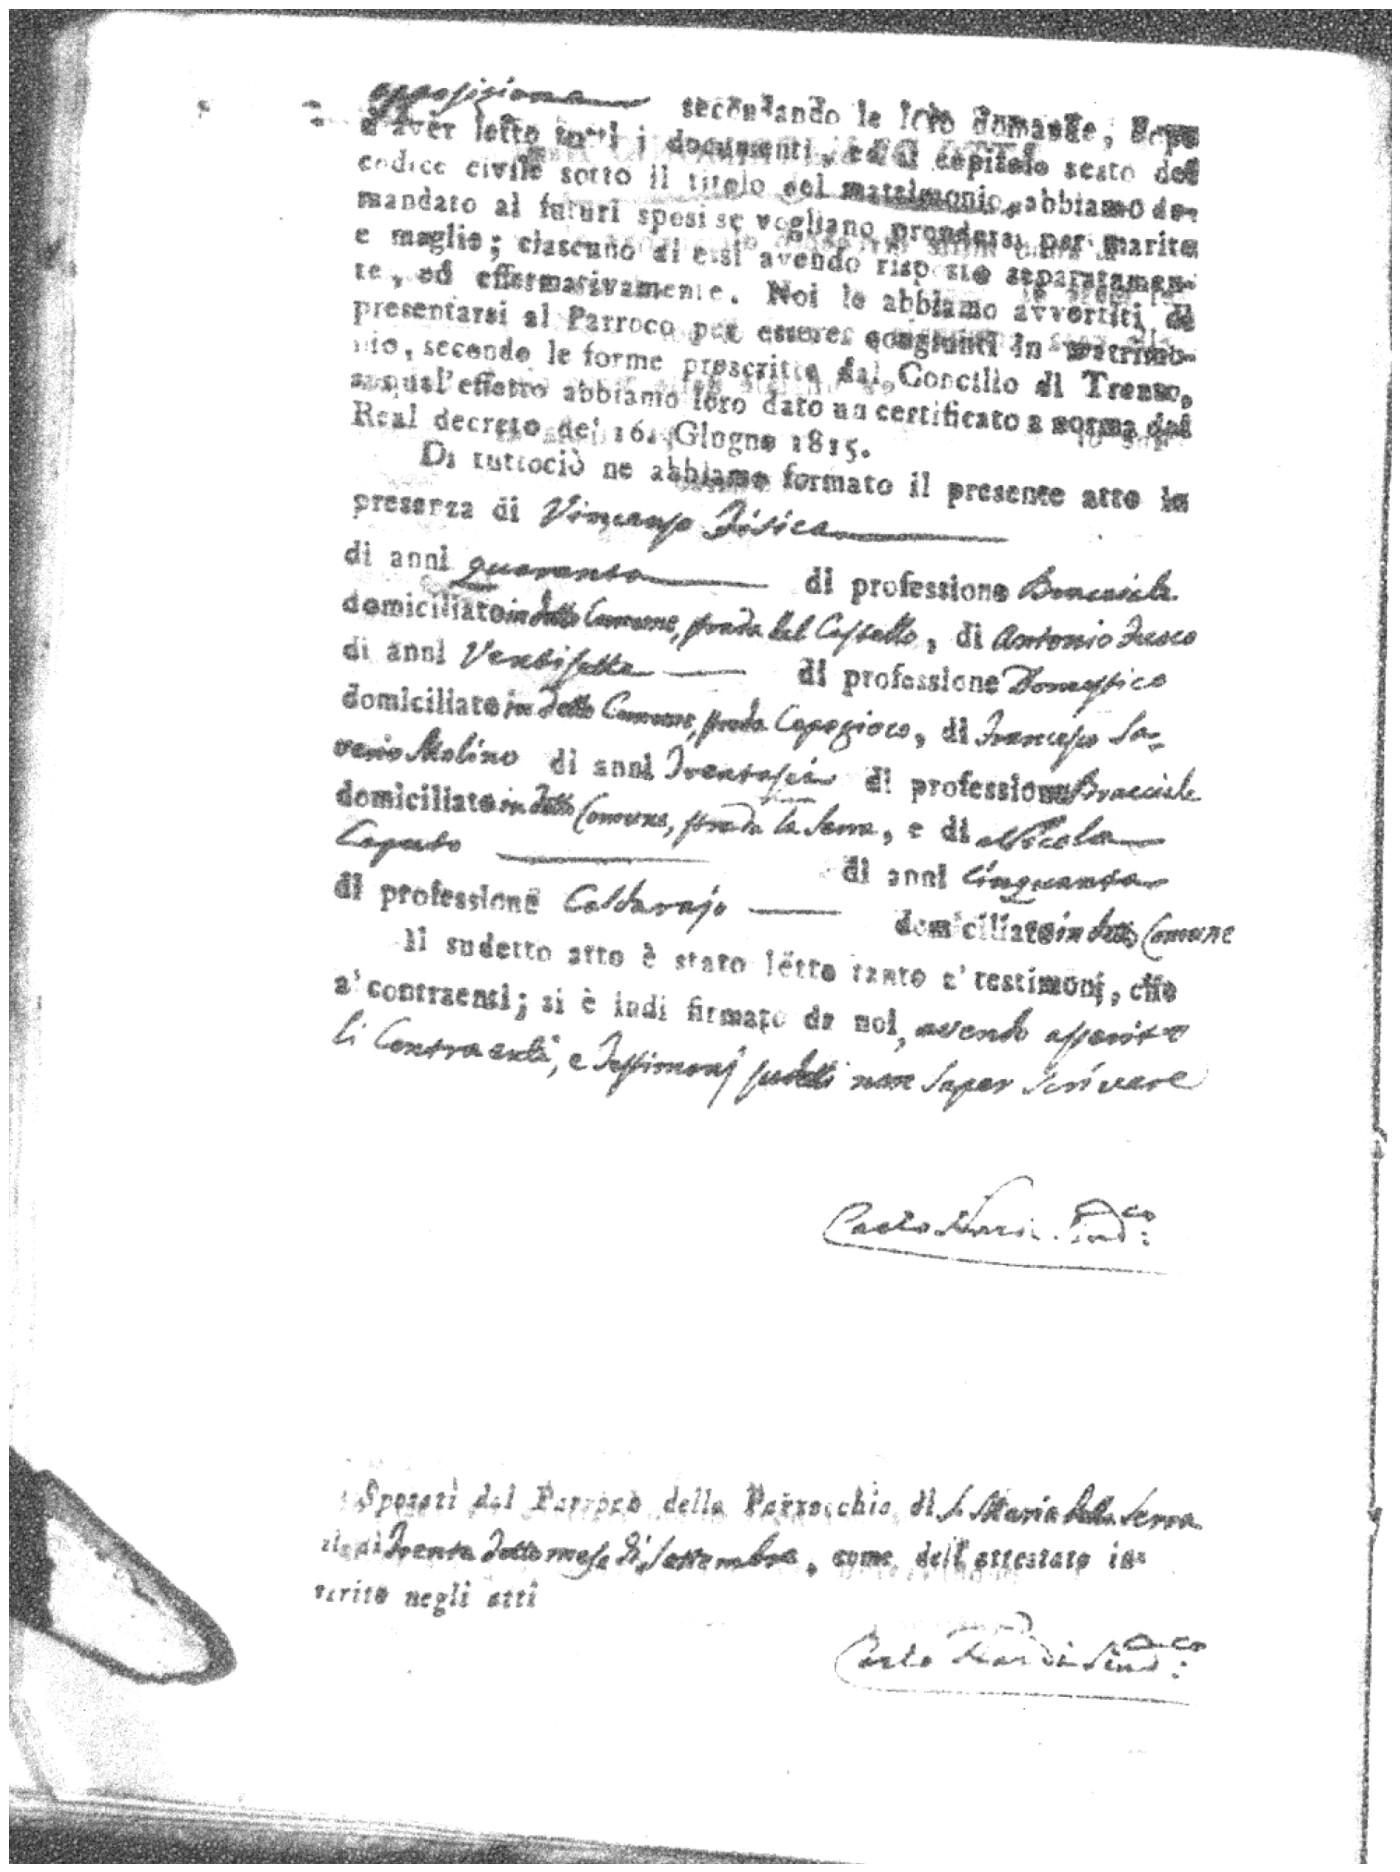 opposizione secondando le loro domande, dopo
d'aver letto tutti i documenti, ed il capitolo sesto del
codice civile sotto il titolo del matrimonio, abbiamo do-
mandato ai futuri sposi se vogliano prendersi per marito
e moglie; ciascuno di essi avendo risposto separatamen-
te, ed affermativamente. Noi le abbiamo avvertiti di
presentarsi al Parroco per essere congiunti in matrimo-
nio, secondo le forme prescritte dal Concilio di Trento,
qual'effetto abbiamo loro dato un certificato a norma del
Real decreto de' 16. Giugno 1815.
Di tuttociò ne abbiamo formato il presente atto in
presenza di Vincenzo Fisica
di anni quaranta di professione Bracciale
domiciliato in detto Comune, strada del Castello, di Antonio Fusco
di anni Ventisette di professione Domestico
domiciliato in detto Comune, strada Capogioco, di Francesco Sa-
verio Molino di anni Trentasei di professione Bracciale
domiciliato in detto Comune, strada la Serra, e di Nicola
Caputo di anni cinquanta
di professione Caldarajo domiciliato in detto Comune
Il sudetto atto è stato letto tanto a' testimonj, che
a' contraenti; si è indi firmato da noi, avendo asserito
li Contraenti, e Testimonj sudetti non saper scrivere
Carlo Sind.co
Sposati dal Parroco della Parrocchia di S. Maria della Serra
Trenta detto mese di Settembre, come dell'attestato in-
serito negli atti
Carlo Sind.co